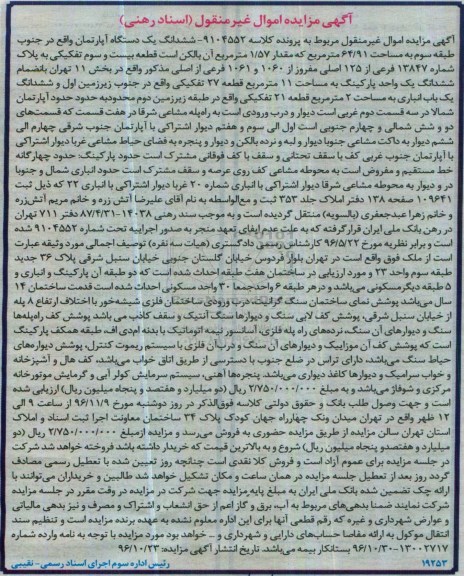 آگهی مزایده اموال غیرمنقول (اسناد رهنی)
آگهی مزایده اموال غیرمنقول مربوط به پرونده کلاسه ۹۱۰۴۵۵۲- ششدانگ یک دستگاه آپارتمان واقع در جنوب
طبقه سوم به مساحت ۶۴/۹۱ مترمربع که مقدار ۱/۵۷ مترمربع آن بالکن است قطعه بیست و سوم تفکیکی به پلاک
شماره ۱۳۸۴۷ فرعی از ۱۲۵ اصلی مفروز از ۱۰۶۰ و ۱۰۶۱ فرعی از اصلی مذکور واقع در بخش ۱۱ تهران بانضمام
ششدانگ یک واحد پارکینگ به مساحت ۱۱ مترمربع قطعه ۲۷ تفکیکی واقع در جنوب زیرزمین اول و ششدانگ
یک باب انباری به مساحت ۲ مترمربع قطعه ۲۱ تفکیکی واقع در طبقه زیرزمین دوم محدوبه حدود حدود آپارتمان
شمالا در سه قسمت دوم غربی است دیوار و درب ورودی است به راه پله مشاعی شرقا در هفت قسمت که قسمت‌های
دو و شش شمالی و چهارم جنوبی است اول الی سوم و هفتم دیوار اشتراکی با آپارتمان جنوب شرقی چهارم الی
ششم دیوار به داکت مشاعی جنوبا دیوار و لبه و نرده بالکن و دیوار و پنجره به فضای حیاط مشاعی غربا دیوار اشتراکی
با آپارتمان جنوب غربی کف با سقف تحتانی و سقف با کف فوقانی مشترک است حدود پارکینگ: حدود چهارگانه
خط مستقیم و مفروض است به محوطه مشاعی کف روی عرصه و سقف مشترک است حدود انباری شمال و جنوبا
در و دیوار به محوطه مشاعی شرقا دیوار اشتراکی با انباری شماره ۲۰ غربا دیوار اشتراکی با انباری ۲۲ که ذیل ثبت
۱۰۹۶۴۱ صفحه ۱۳۸ دفتر املاک جلد ۳۵۳ ثبت و مع‌الواسطه به نام آقای علیرضا آتش زره و خانم مریم آتش‌زره
و خانم زهرا عبدجعفری (بالسویه) منتقل گردیده است و به موجب سند رهنی ۱۴۰۳۸-۸۷/۴/۳۱ دفتر ۷۱۱ تهران
در رهن بانک ملی ایران قرار گرفته که به علت عدم ایفای تعهد منجر به صدور اجراییه تحت شماره ۹۱۰۴۵۵۲ شده
است و برابر نظریه مورخ ۹۶/۵/۲۲ کارشناس رسمی دادگستری (هیات سه نفره) توصیف اجمالی مورد وثیقه عبارت
است از ملک فوق واقع است در تهران بلوار فردوس خیابان گلستان جنوبی خیابان سنبل شرقی پلاک ۳۶ جدید
طبقه سوم واحد ۲۳ و مورد ارزیابی در ساختمان هفت طبقه احداث شده است که دو طبقه آن پارکینگ و انباری و
۵ طبقه دیگر مسکونی می‌باشد و در هر طبقه ۶ واحد جمعا ۳۰ واحد مسکونی احداث شده است قدمت ساختمان ۱۴
سال می‌باشد پوشش نمای ساختمان سنگ گرانیت، درب ورودی ساختمان فلزی شیشه‌خور با اختلاف ارتفاع ۸ پله
از خیابان سنبل شرقی، پوشش کف لابی سنگ و دیوارها سنگ آنتیک و سقف کاذب می باشد پوشش کف راه‌پله‌ها
سنگ و دیوارهای آن سنگ، نرده‌های راه پله فلزی، آسانسور نیمه اتوماتیک با بدنه ام‌دی‌اف، طبقه همکف پارکینگ
است که پوشش کف آن موزاییک و دیوارهای آن سنگ و درب آن فلزی با سیستم ریموت کنترل، پوشش دیواره‌های
حیاط سنگ می‌باشد، دارای تراس در ضلع جنوب با دسترسی از طریق اتاق خواب می‌باشد، کف هال و آشپزخانه
و خواب سرامیک و دیوارها کاغذ دیواری می‌باشد، پنجره‌ها آهنی، سیستم سرمایش کولر آبی و گرمایش موتورخانه
مرکزی و شوفاژ می‌باشد و به مبلغ ۲/۷۵۰/۰۰۰/۰۰۰ ریال (دو میلیارد و هفتصد و پنجاه میلیون ریال) ارزیابی شده
است و جهت وصول طلب بانک و حقوق دولتی کلاسه فوق‌الذکر در روز دوشنبه مورخ ۹۶/۱۱/۹ از ساعت ۹ الی
۱۲ ظهر واقع در تهران میدان ونک چهارراه جهان کودک پلاک ۳۴ ساختمان معاونت اجرا ثبت اسناد و املاک
استان تهران سالن مزایده از طریق مزایده حضوری به فروش می‌رسد و مزایده از مبلغ ۲/۷۵۰/۰۰۰/۰۰۰ ریال (دو
میلیارد و هفتصد و پنجاه میلیون ریال) شروع و به بالاترین قیمت که خریدار داشته باشد فروخته خواهد شد شرکت
در جلسه مزایده برای عموم آزاد است و فروش کلا نقدی است چنانچه روز تعیین شده با تعطیل رسمی مصادف
گردد روز بعد از تعطیل جلسه مزایده در همان ساعت و مکان تشکیل خواهد شد طالبین و خریداران می‌توانند با
ارائه چک تضمین شده بانک ملی ایران به مبلغ پایه مزایده جهت شرکت در مزایده در وقت مقرر در جلسه مزایده
شرکت نمایند ضمنا بدهی‌های مربوط به آب، برق و گاز اعم از حق انشعاب و اشتراک و مصرف و نیز بدهی مالیاتی
و عوارض شهرداری و غیره که رقم قطعی آنها برای این اداره معلوم نشده به عهده برنده مزایده است و تنظیم سند
انتقال موکول به ارائه مفاصا حساب‌های دارایی و شهرداری و ... خواهد بود مورد مزایده با توجه به نامه وارده شماره
۱۳۰۰۲۷۱۷-۹۶/۱۰/۳ بستانکار بیمه می‌باشد. تاریخ انتشار آگهی مزایده: ۹۶/۱۰/۲۳
۱۹۲۵۳
رئیس اداره سوم اجرای اسناد رسمی - نقیبی